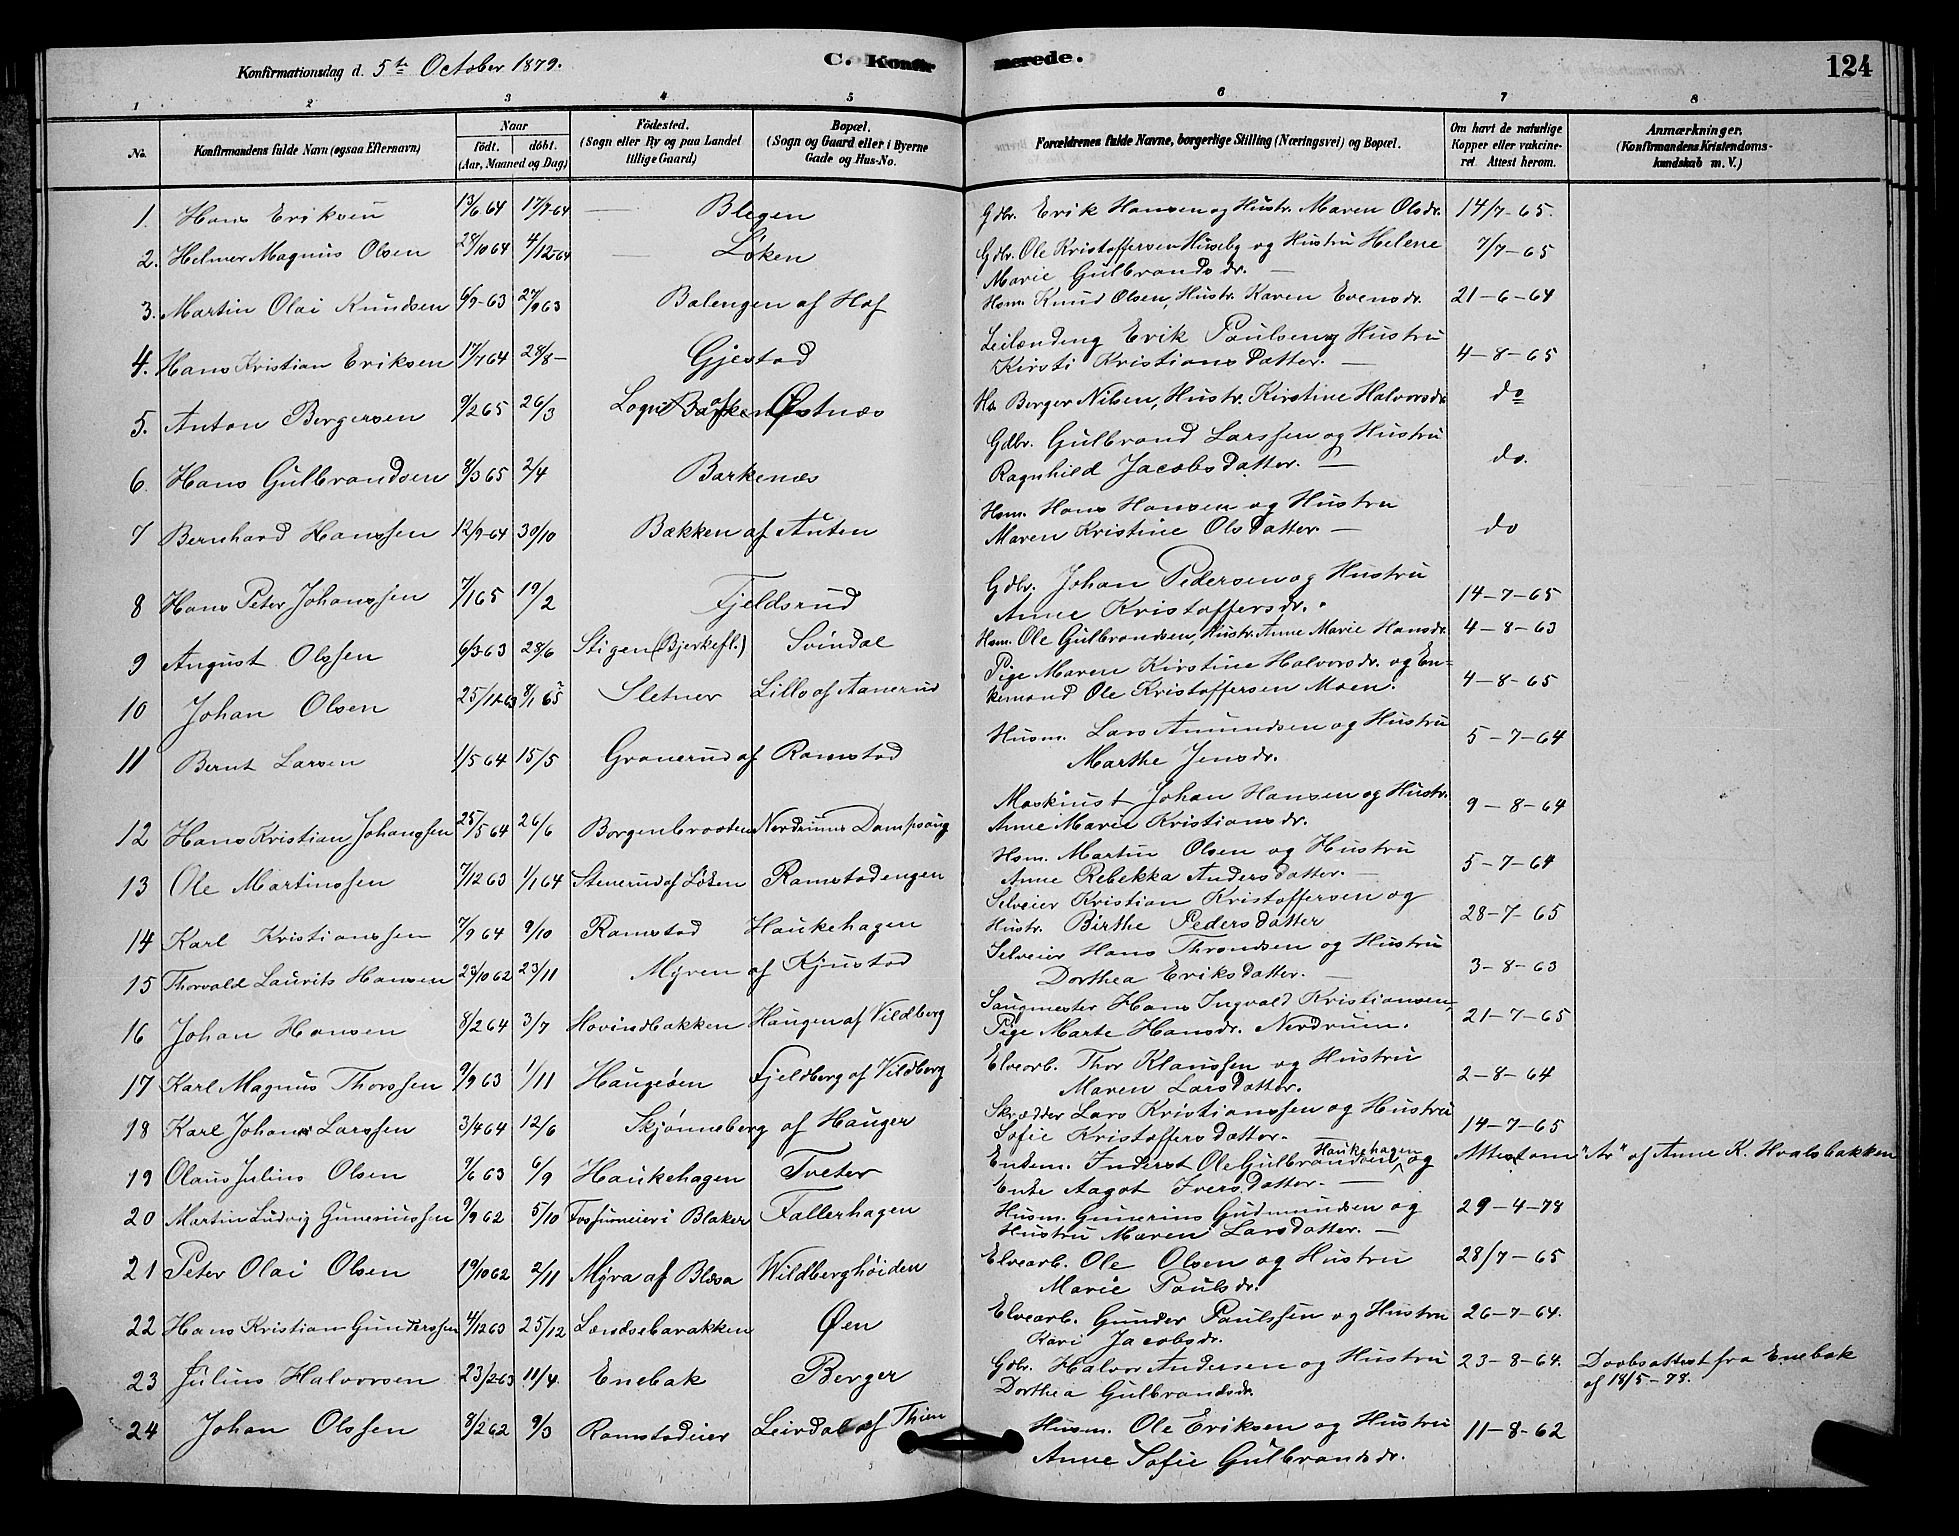 Konfirmationsdag d. 5te October 1879.
C. Konfirmerede.
124
1 2 3 4 5 6 7 8
No.
Konfirmandens fulde Navn (ogsaa Efternavn)
Naar
født. døbt.
(Aar, Maaned og Dag)
Fødested.
(Sogn eller By og paa Landet
tillige Gaard)
Bopæl.
(Sogn og Gaard eller i Byerne
Gade og Hus-No.
Forældrenes fulde Navne, borgerlige Stilling (Næringsvei) og Bopæl.
Om havt de naturlige
Kopper eller vakcine-
ret. Attest herom.
Anmærkninger.
(Konfirmandens Kristendoms-
kundskab m. V.)
1. Hans Eriksen 13/6 64 17/7-64 — Blegen Gdbr. Erik Hansen og Hustr. Maren Olsdr. 14/7-65.
2. Helmer Magnus Olsen 28/10 64 4/12-64 — Løken Gdbr. Ole Kristoffersen Huseby og Hustru Helene
Marie Gulbrandsdr. — 7/7-65
3. Martin Olai Knudsen 6/9-63 27/9 63 Balengen af Hof Hsm. Knud Olsen, Hustr. Karen Evensdr. 21-6-64
4. Hans Kristian Eriksen 17/7 64 28/8- Gjestad Leilænding Erik Paulsen og Hustru
Kirsti Kristiansdatter. — 4-8-65
5. Anton Bergersen 9/2 65 26/3 af Østnæs Hs. Berger Nilsen, Hustr. Kirstine Halvorsdr. do
6. Hans Gulbrandsen 8/3 65 2/4 Barkenæs Gdbr. Gulbrand Larssen og Hustru
Ragnhild Jacobsdatter. — do.
7 Bernhard Hanssen 12/9-64 30/10 Bakken af Auten Hsm. Hans Hansen og Hustru
Maren Kristine Olsdatter. — do
8 Hans Peter Johanssen 7/1 65 19/2 Fjeldsrud Gdbr. Johan Pedersen og Hustru
Anne Kristoffersdr. 14-7-65
9 August Olssen 6/3-63 28/6 Stigen (Bjerkefl.) Svindal Hsm. Ole Gulbrandsen, Hustr. Anne Marie Hansdr. 4-8-63
10 Johan Olsen 25/11-63 8/1 65 Sletner Lillo af Aanerud Pige Maren Kirstine Halvorsdr. og En-
kemand Ole Kristoffersen Moen. 4-8-65
11 Bernt Larsen 1/5 64 15/5 Granerud af Ramstad Husm. Lars Amundsen og Hustru
Marthe Jensdr. 5-7-64
12 Hans Kristian Johanssen 25/5 64 26/6 Borgenbraaten Nerdrums Dampsaug Maskinist Johan Hansen og Hustr.
Anne Marie Kristiansdr. 9-8-64
13 Ole Martinssen 7/12 63 1/1 64 Stenerud af Løken Ramstadengen Hsm. Martin Olsen og Hustru
Anne Rebekka Andersdatter. — 5-7-64
14 Karl Kristianssen 7/9 64 9/10 Ramstad Haukehagen Selveier Kristian Kristoffersen og
Hustr. Birthe Pedersdatter 28-7-65
15 Thorvald Laurits Hansen 23/10 62 23/11 Myren af Kjustad Selveier Hans Throndsen og Hustru
Dorthea Eriksdatter. — 3-8-63
16 Johan Hansen 8/2 64 3/7 Hovindbakken Haugen af Vildberg Saugmester Hans Ingvald Kristiansen,
Pige Marte Hansdr. Nerdrum. 21-7-65
17 Karl Magnus Thorssen 9/9 63 1/11 Haugsøen Fjeldberg af Vildberg Elvearb. Thor Klaussen og Hustru
Maren Larsdatter. 2-8-64
18 Karl Johan Larssen 3/4 64 12/6 Skjønneberg af Hauger Skrædder Lars Kristianssen og Hustru
Sofie Kristoffersdatter. — 14-7-65
19 Olaus Julius Olsen 9/6 63 6/9 Haukehagen Tveter Enkem. Inderst Ole Gulbrandsen Haukehagen og
Enke Aagot Iversdatter. — Attest om "Ar" af Anne K. Hvalsbakken
20 Martin Ludvig Guneriussen 9/9 62 5/10 Fossumeier i Blaker Fallerhagen Husm. Gunerius Gudmundsen og
Hustru Maren Larsdatter. — 29-4-78
21 Peter Olai Olsen 19/10 62 2/11 Myra af Blæsa Wildberghøiden Elvearb. Ole Olsen og Hustru
Marie Paulsdr. 28/7-65
22 Hans Kristian Gunderssen 4/12 63 25/12 Lændsebarakken Øen Elvearb. Gunder Paulssen og Hustru
Kari Jacobsdr. 26-7-64.
23 Julius Halvorsen 23/2-63 11/4. Enebak Berger Gdbr. Halvor Andersen og Hustru
Dorthea Gulbrandsdr. 23-8-64. Daabsattest fra Enebak
af 18/5-78.
24 Johan Olssen 8/2 62 9/3 Ramstadeier Leirdal af Thien Husm. Ole Eriksen og Hustru
Anne Sofie Gulbrandsdr. 11-8-62